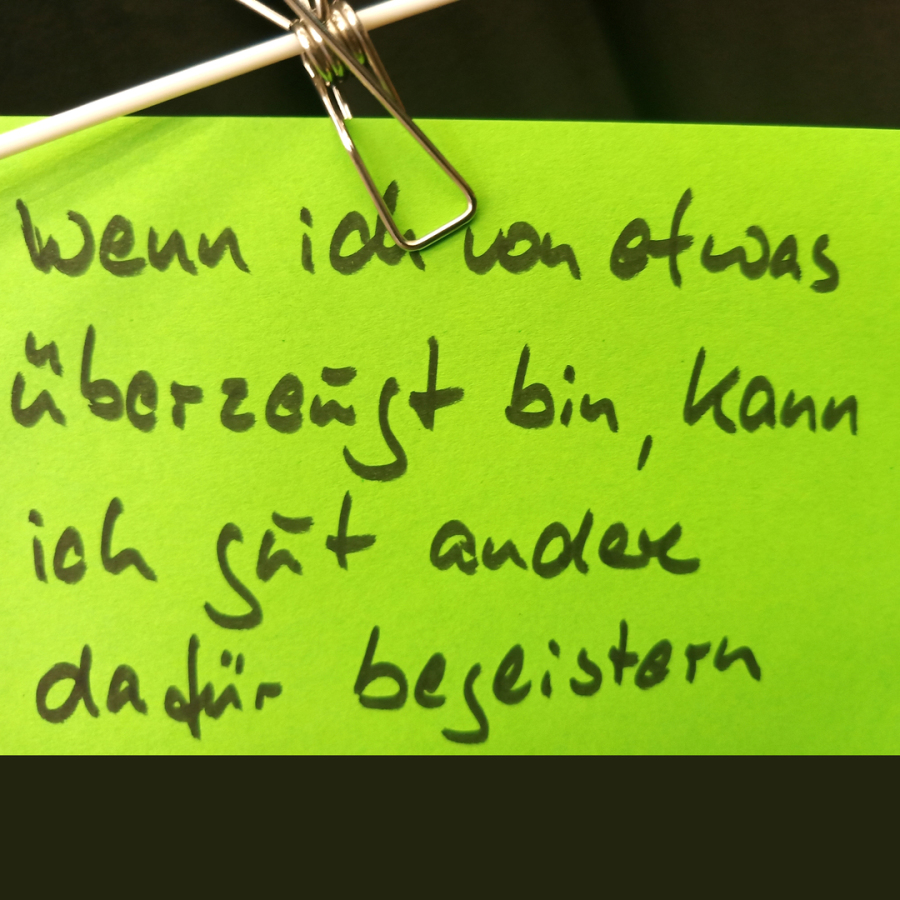 Wenn ich von etwas
überzeugt bin, kann
ich gut andere
dafür begeistern